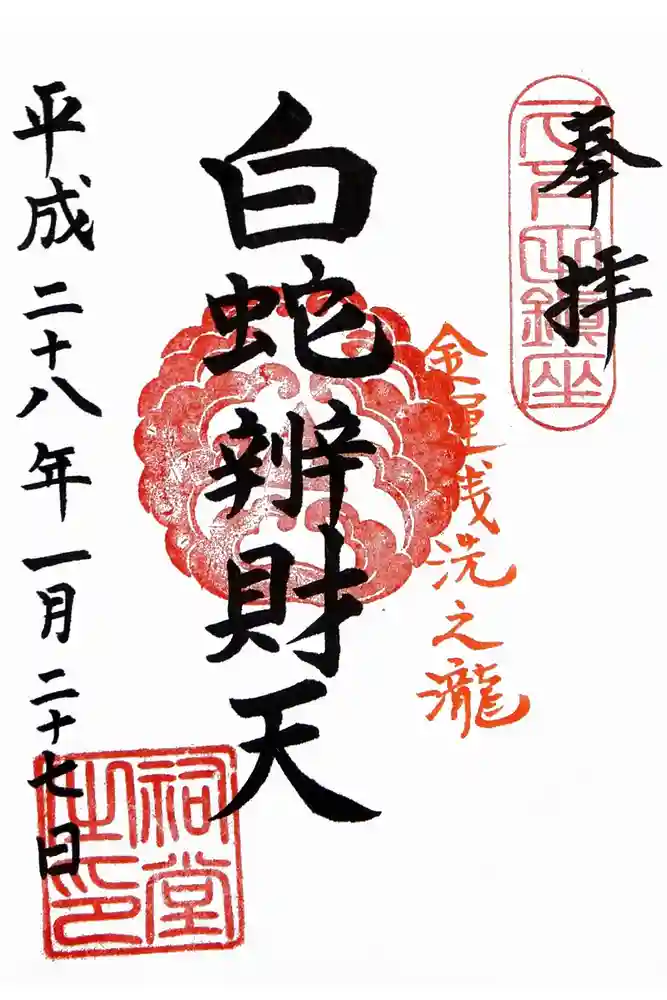 奉拝
鎮座
金運銭洗之瀧
白蛇辨財天
平成二十八年一月二十七日
祠堂
之印